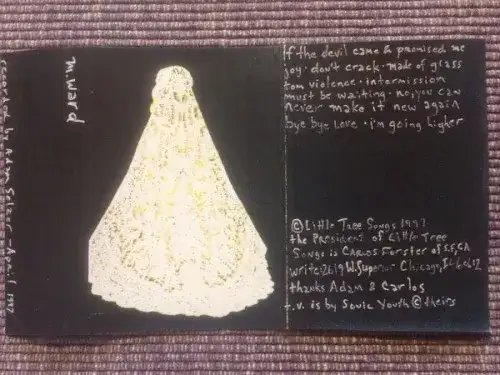 recorded by Adam Selzer - April, 1997
m. ward
if the devil came & promised me
joy · don't crack · made of glass
tom violence · intermission
must be waiting · no, you can
never make it new again
bye bye love · i'm going higher
© Little Tree Songs 1997
the President of Little Tree
Songs is Carlos Forster of S.F., CA
write: 2619 W. Superior Chicago, IL 60612
thanks Adam & Carlos
t.v. is by Sonic Youth © theirs